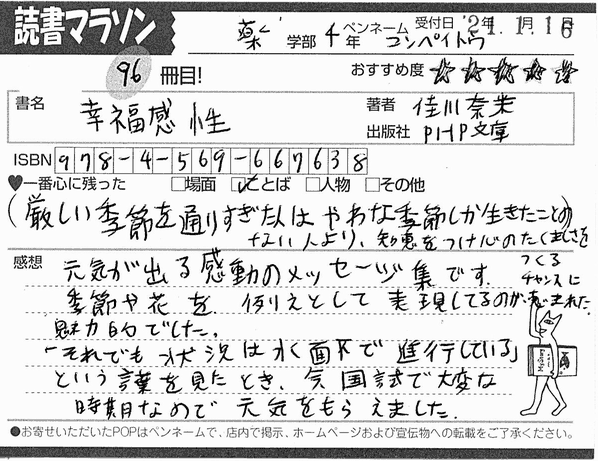 読書マラソン
薬 学部 4 年 ペンネーム コンペイトウ 受付日 '24年 1. 1月 16日
96 冊目!
おすすめ度 ☆☆☆☆☆
書名 幸福感性
著者 佳川奈未
出版社 PHP文庫
ISBN 978-4-569-667638
♥一番心に残った □場面 ☑ことば □人物 □その他
(厳しい季節を通りすぎた人は やわな季節しか生きたことの
ない人より、知恵をつけ心のたくましさを
つくる
チャンスに
恵まれた
感想 元気が出る感動のメッセージ集です.
季節や花を 例えとして 表現してるのが
魅力的でした。
「それでも状況は水面下で進行している」
という言葉を見たとき、今国試で大変な
時期なので 元気をもらえました.
●お寄せいただいたPOPはペンネームで、店内で掲示、ホームページおよび宣伝物への転載をご了承ください。